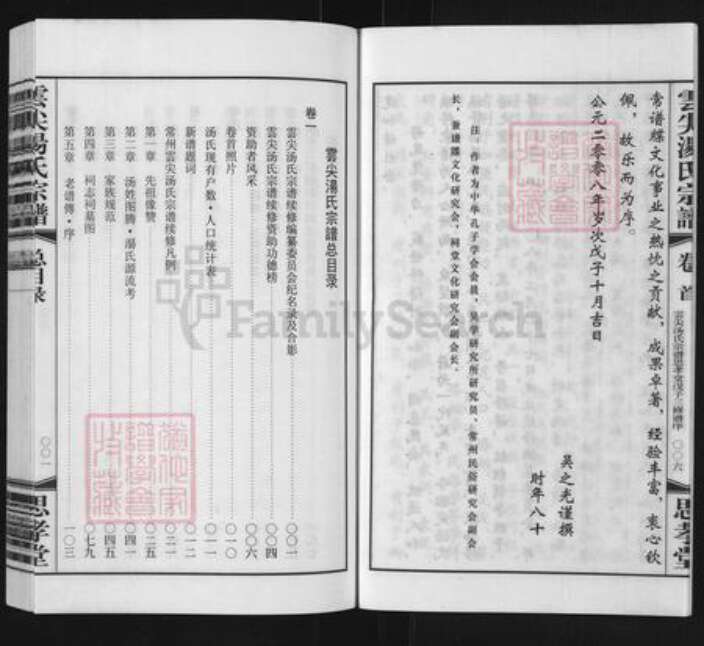 常谱牒文化事业之热忱之贡献，成果卓著，经验丰富，衷心钦
佩，故乐而为序。
公元二零零八年岁次戊子十月吉日
吴之光谨撰
时年八十
注：作者为中华孔子学会会员、吴学研究所研究员、常州民俗研究会副会
长，兼谱牒文化研究会、祠堂文化研究会副会长。
雲尖湯氏宗譜
卷首
〇〇六
思孝堂
雲尖湯氏宗譜总目录
卷一
雲尖汤氏宗谱续修编纂委员会纪名录及合影 〇〇一
雲尖汤氏宗谱续修资助功德榜 〇〇四
资助者风采 〇〇六
卷首照片 〇一〇
汤氏现有户数·人口统计表 〇一一
新谱题词 〇一二
常州雲尖汤氏宗谱续修凡例 〇二一
第一章 先祖像赞 〇二五
第二章 汤姓图腾·湯氏源流考 〇四一
第三章 家族规范 〇四五
第四章 祠志祠墓图 〇七九
第五章 老谱傳·序 一〇三
雲尖湯氏宗譜
总目录
〇〇一
思孝堂
FamilySearch